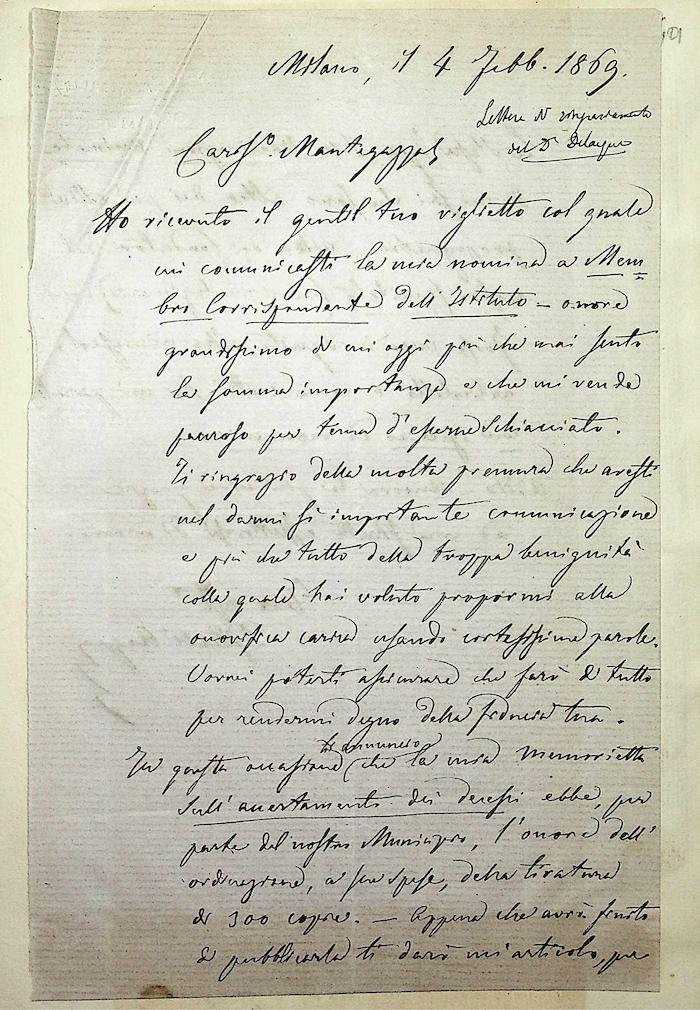 Milano, il 4 Febb. 1869.
Lettera di ringraziamento
del Dr. Delacqua
Cariss.o Mantegazza
Ho ricevuto il gentil tuo viglietto col quale
mi comunicasti la mia nomina a Mem=
bro Corrispondente dell'Istituto – onore
grandissimo di cui oggi più che mai sento
la somma importanza e che mi rende
pauroso per tema d'esserne schiacciato.
Ti ringrazio della molta premura che avesti
nel darmi sì importante comunicazione
e più che tutto della troppa benignità
colla quale hai voluto propormi alla
onorifica carica usando cortesissime parole.
Vorrei poterti assicurare che farò di tutto
per rendermi degno della fiducia tua.
In questa occasione ti annuncio che la mia memorietta
sull'accertamento dei decessi ebbe, per
parte del nostro Municipio, l'onore dell'
ordinazione, a sue spese, della tiratura
di 300 copie. – Appena che avrò finito
di pubblicarla ti darò un articolo, per